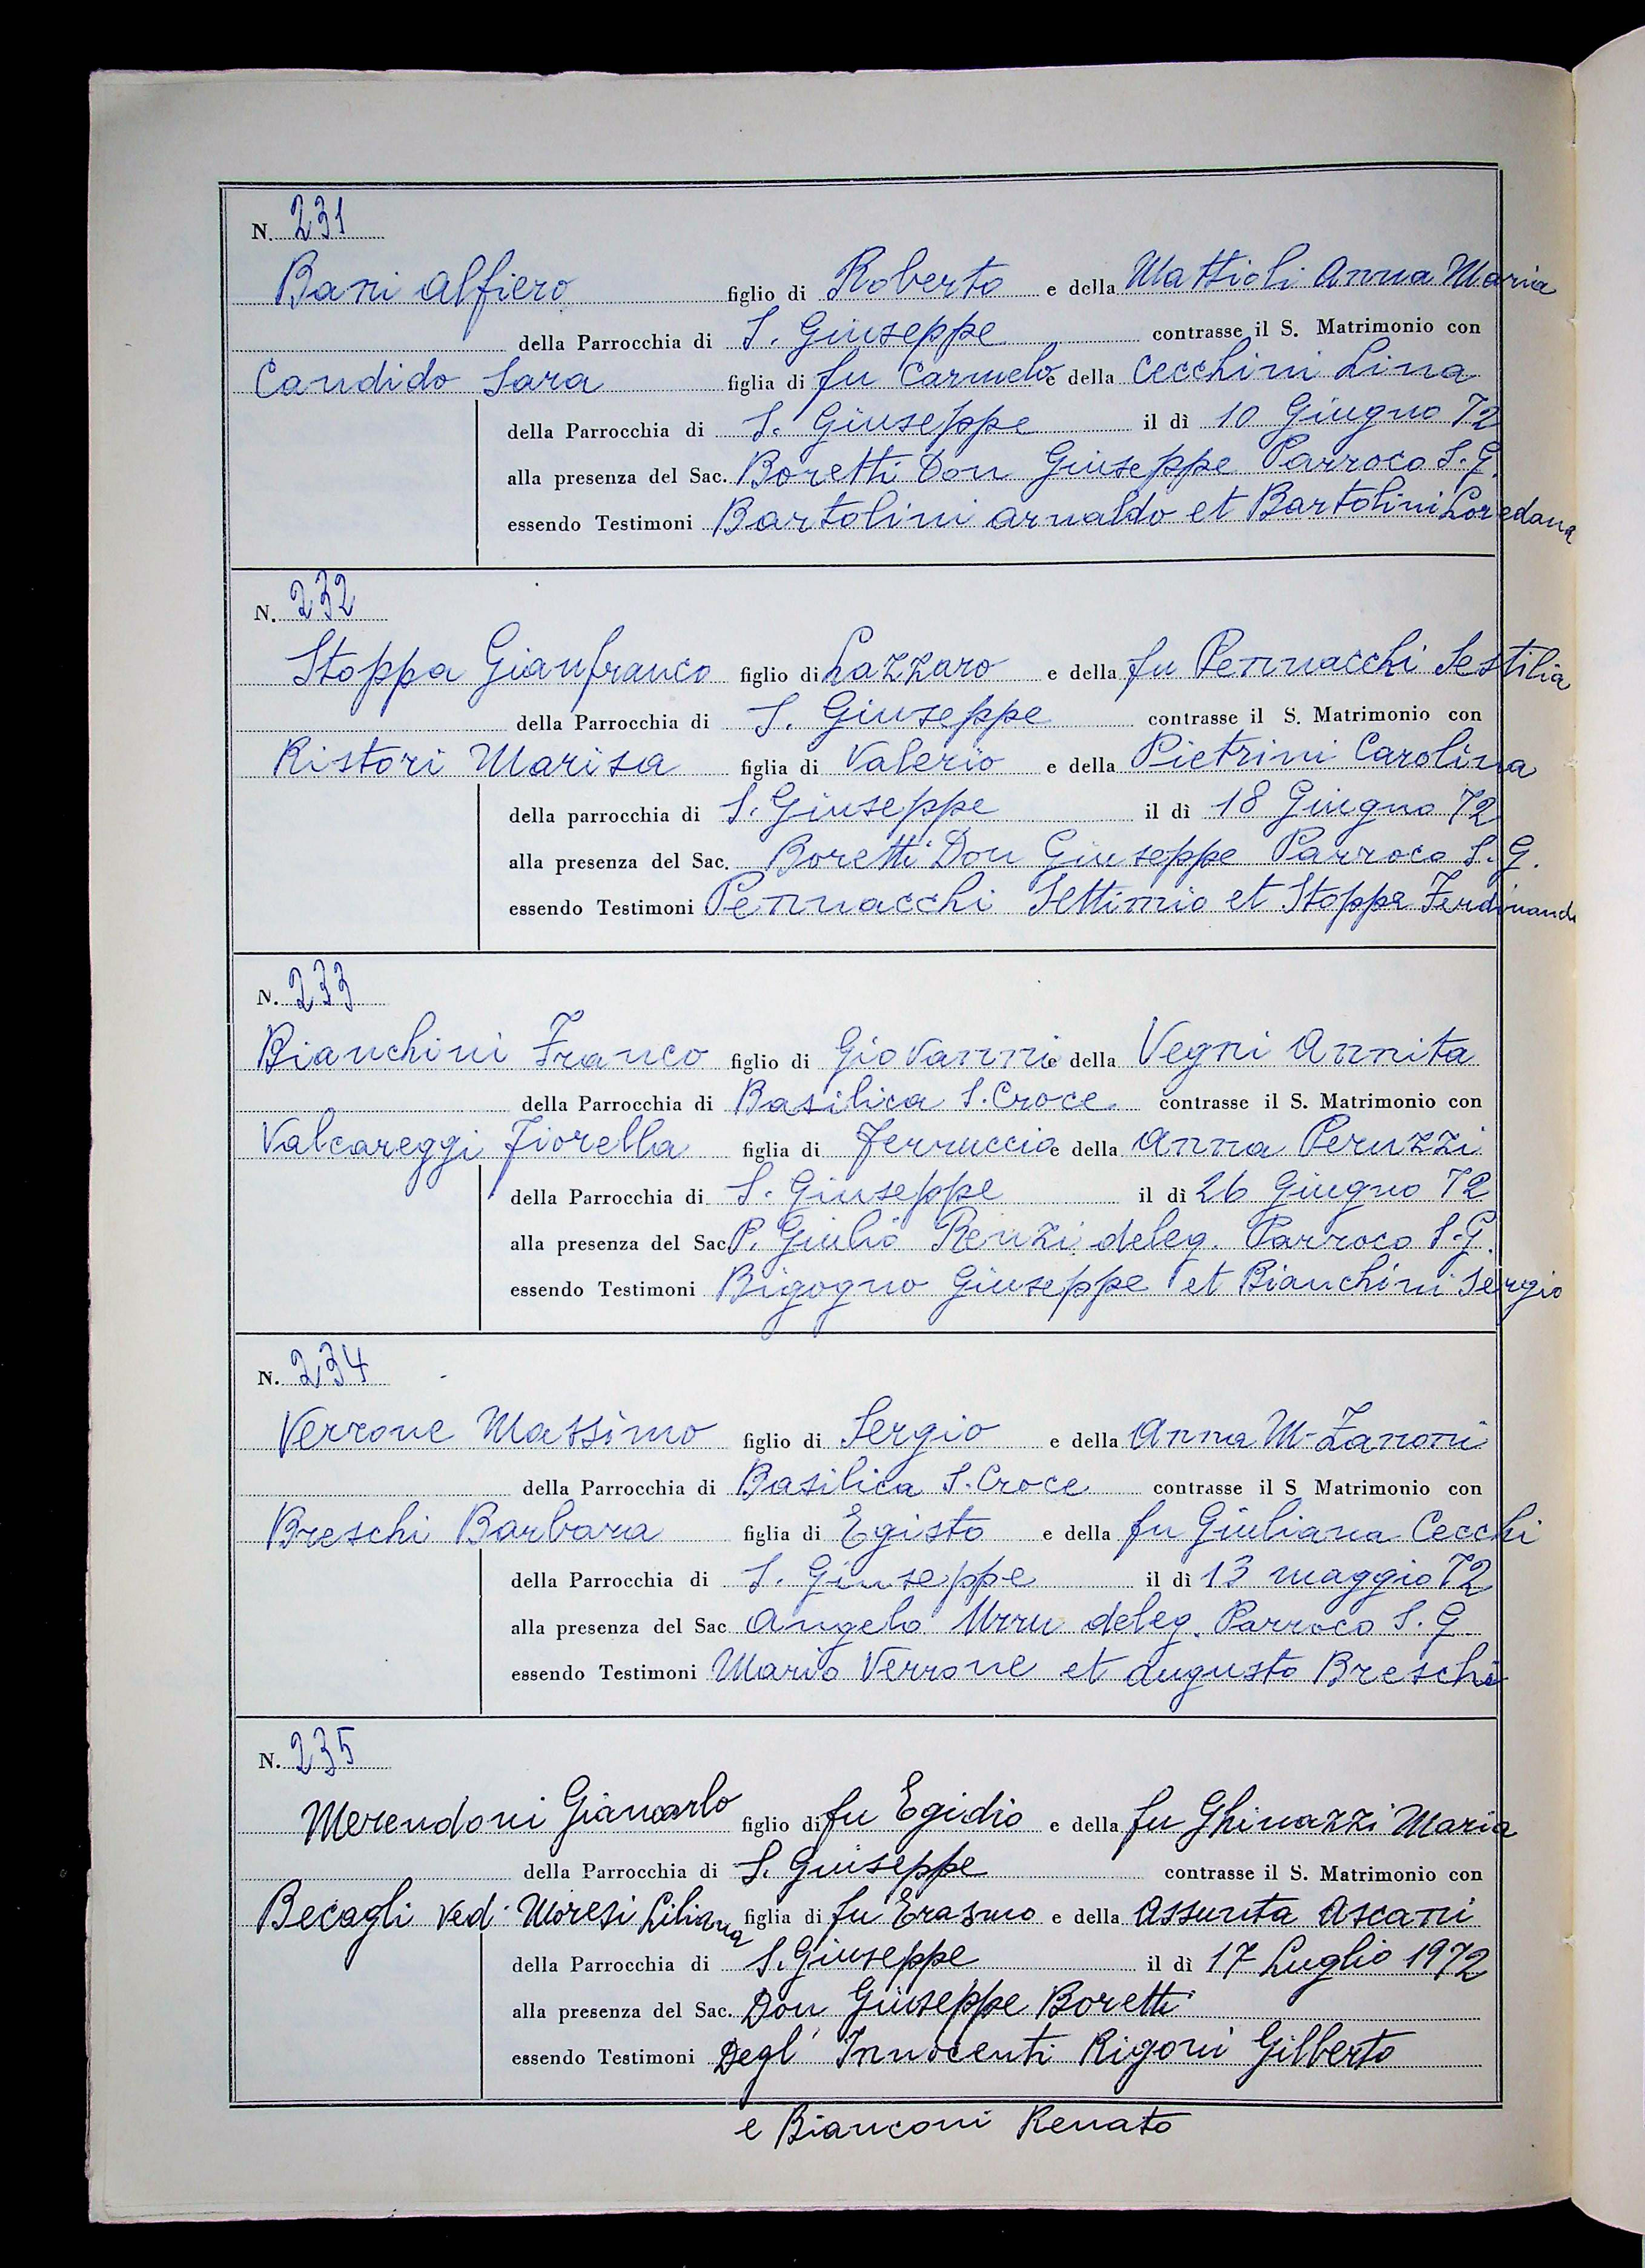 N. 231
Bani Alfiero figlio di Roberto e della Mattioli Anna Maria
della Parrocchia di S. Giuseppe contrasse il S. Matrimonio con
Candido Sara figlia di fu Carmelo e della Cecchini Lina
della Parrocchia di S. Giuseppe il dì 10 Giugno 72
alla presenza del Sac. Boretti Don Giuseppe Parroco S. G.
essendo Testimoni Bartolini Arnaldo et Bartolini Loredana
N. 232
Stoppa Gianfranco figlio di Lazzaro e della fu Pennacchi Sestilia
della Parrocchia di S. Giuseppe contrasse il S. Matrimonio con
Ristori Marisa figlia di Valerio e della Pietrini Carolina
della parrocchia di S. Giuseppe il dì 18 Giugno 72
alla presenza del Sac. Boretti Don Giuseppe Parroco S. G.
essendo Testimoni Pennacchi Settimio et Stoppa
N. 233
Bianchini Franco figlio di Giovanni e della Vegni Annita
della Parrocchia di Basilica S. Croce contrasse il S. Matrimonio con
Valcareggi Fiorella figlia di Ferruccio e della Anna Peruzzi
della Parrocchia di S. Giuseppe il dì 26 Giugno 72
alla presenza del Sac. P. Giulio Renzi deleg. Parroco S. G.
essendo Testimoni Bigogno Giuseppe et Bianchini Sergio
N. 234
Verrone Massimo figlio di Sergio e della Anna M. Zanoni
della Parrocchia di Basilica S. Croce contrasse il S Matrimonio con
Breschi Barbara figlia di Egisto e della fu Giuliana Cecchi
della Parrocchia di S. Giuseppe il dì 13 maggio 72
alla presenza del Sac. Angelo Urru deleg. Parroco S. G.
essendo Testimoni Mario Verrone et Augusto Breschi
N. 235
Merendoni Giancarlo figlio di fu Egidio e della fu Ghinazzi Maria
della Parrocchia di S. Giuseppe contrasse il S. Matrimonio con
Becagli ved. Moresi Liliana figlia di fu Erasmo e della Assunta Ascani
della Parrocchia di S. Giuseppe il dì 17 Luglio 1972
alla presenza del Sac. Don Giuseppe Boretti
essendo Testimoni Degl' Innocenti Rigoni Gilberto
e Bianconi Renato